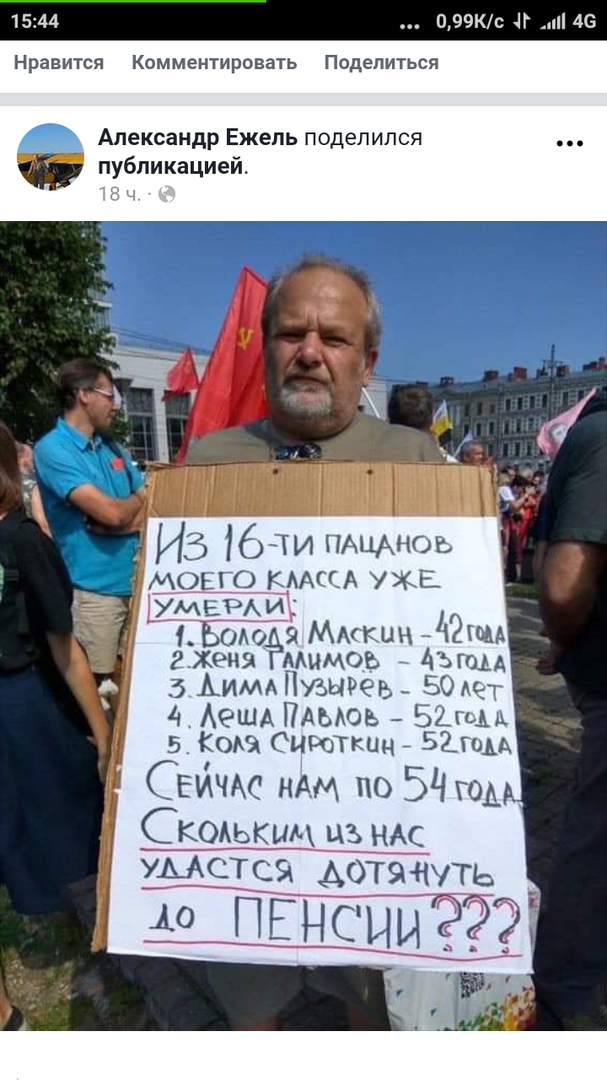 15:44
... 0,99К/с 4G
Нравится Комментировать Поделиться
Александр Ежель поделился
публикацией.
18 ч. ·
ИЗ 16-ТИ ПАЦАНОВ
МОЕГО КЛАССА УЖЕ
УМЕРЛИ:
1. ВОЛОДЯ МАСКИН - 42 ГОДА
2. ЖЕНЯ ГАЛИМОВ - 43 ГОДА
3. ДИМА ПУЗЫРЁВ - 50 ЛЕТ
4. ЛЕША ПАВЛОВ - 52 ГОДА
5. КОЛЯ СИРОТКИН - 52 ГОДА
СЕЙЧАС НАМ ПО 54 ГОДА
СКОЛЬКИМ ИЗ НАС
УДАСТСЯ ДОТЯНУТЬ
ДО ПЕНСИИ???